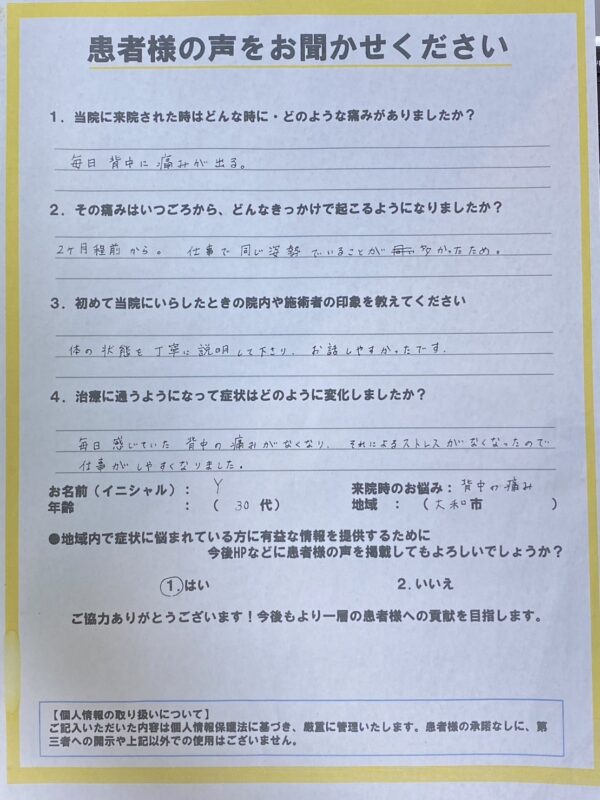 患者様の声をお聞かせください
1．当院に来院された時はどんな時に・どのような痛みがありましたか？
毎日 背中に痛みが出る。
2．その痛みはいつごろから、どんなきっかけで起こるようになりましたか？
2ヶ月程前から。 仕事で同じ姿勢でいることが多かったため。
3．初めて当院にいらしたときの院内や施術者の印象を教えてください
体の状態を丁寧に説明して下さり、お話しやすかったです。
4．治療に通うようになって症状はどのように変化しましたか？
毎日感じていた 背中の痛みがなくなり、それによるストレスがなくなったので
仕事がしやすくなりました。
お名前（イニシャル）： Y 来院時のお悩み：背中の痛み
年齢 ：（ 30 代） 地域 ：（大和市 ）
●地域内で症状に悩まれている方に有益な情報を提供するために
今後HPなどに患者様の声を掲載してもよろしいでしょうか？
1.はい 2.いいえ
ご協力ありがとうございます！今後もより一層の患者様への貢献を目指します。
【個人情報の取り扱いについて】
ご記入いただいた内容は個人情報保護法に基づき、厳重に管理いたします。患者様の承諾なしに、第
三者への開示や上記以外での使用はございません。